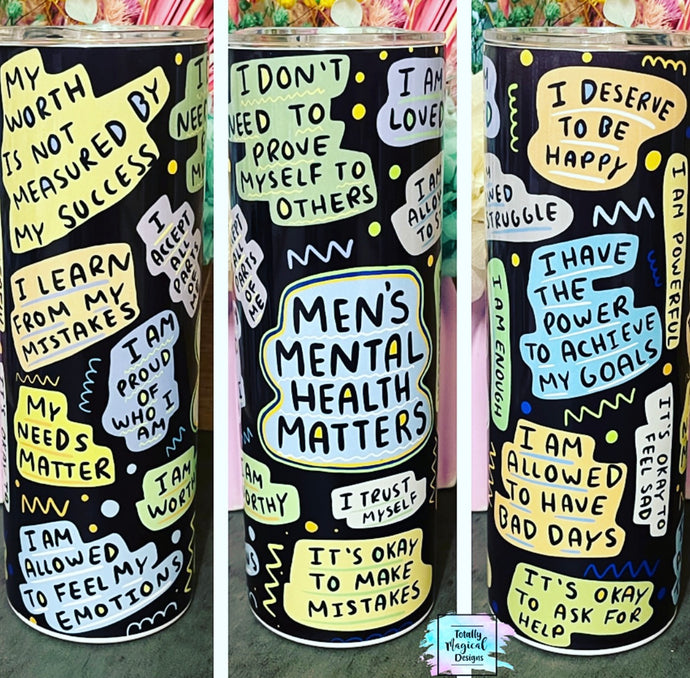 MY
WORTH
IS NOT
MEASURED BY
MY SUCCESS
I
NEED
I ACCEPT
ALL
PARTS
I LEARN
FROM MY
MISTAKES
I AM
PROUD
OF
WHO I
AM
MY
NEEDS
MATTER
I AM
WORTH
I AM
ALLOWED
TO FEEL MY
EMOTIONS
I DON'T
NEED TO
PROVE
MYSELF TO
OTHERS
I AM
LOVED
I AM
ALLOW
TO S
PARTS
OF
ME
MEN'S
MENTAL
HEALTH
MATTERS
I AM
WORTHY
I TRUST
MYSELF
IT'S OKAY
TO MAKE
MISTAKES
I DESERVE
TO BE
HAPPY
STRUGGLE
I AM POWERFUL
I HAVE
THE
POWER
TO ACHIEVE
MY GOALS
I AM ENOUGH
I AM
ALLOWED
TO HAVE
BAD DAYS
IT'S OKAY TO
FEEL SAD
IT'S OKAY
TO ASK FOR
HELP
Totally
Magical
Designs